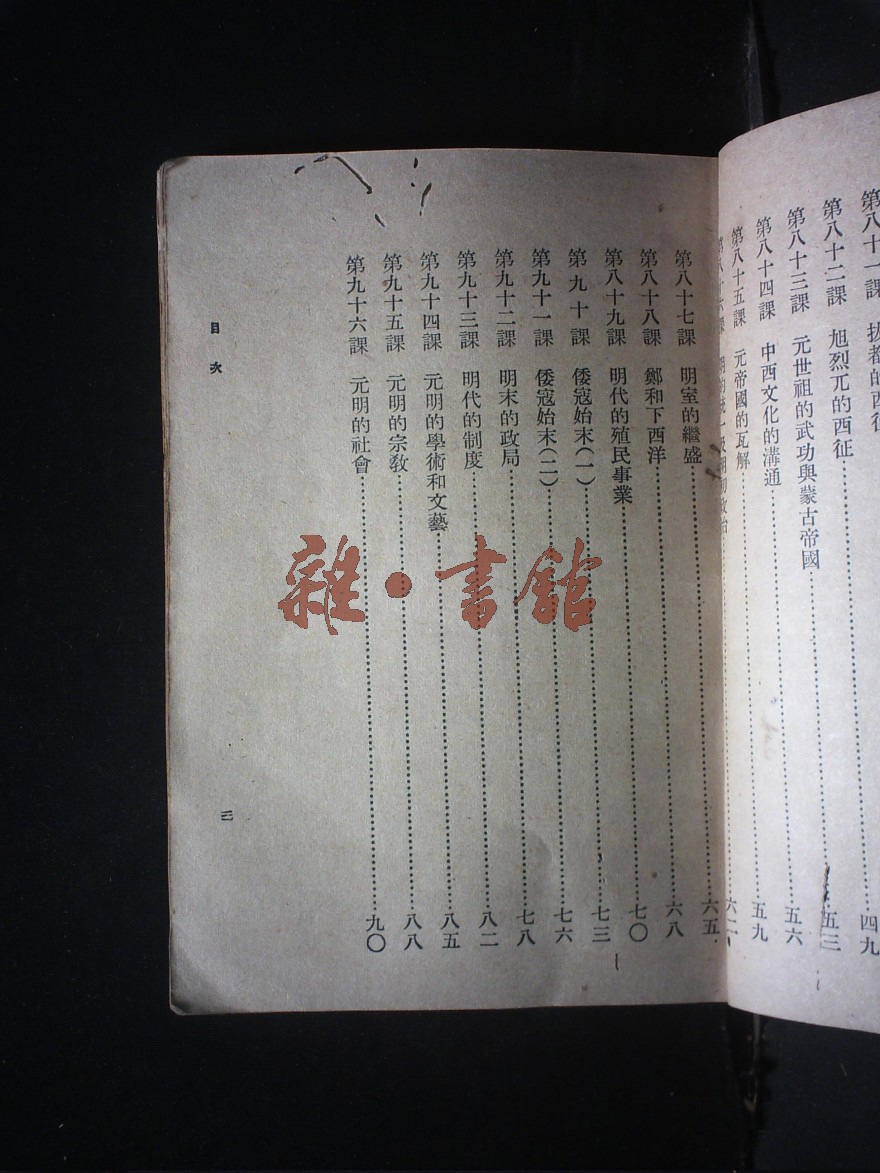 第八十一課 拔都的西征
第八十二課 旭烈兀的西征……五三
第八十三課 元世祖的武功與蒙古帝國……五六
第八十四課 中西文化的溝通……五九
第八十五課 元帝國的瓦解……六二
第八十六課 明的統一及明初政治
第八十七課 明室的繼盛……六八
第八十八課 鄭和下西洋……七〇
第八十九課 明代的殖民事業……七三
第九十課 倭寇始末(一)……七六
第九十一課 倭寇始末(二)……七八
第九十二課 明末的政局……八二
第九十三課 明代的制度……八五
第九十四課 元明的學術和文藝……八八
第九十五課 元明的宗教……九〇
第九十六課 元明的社會
目次
三
雜·書館